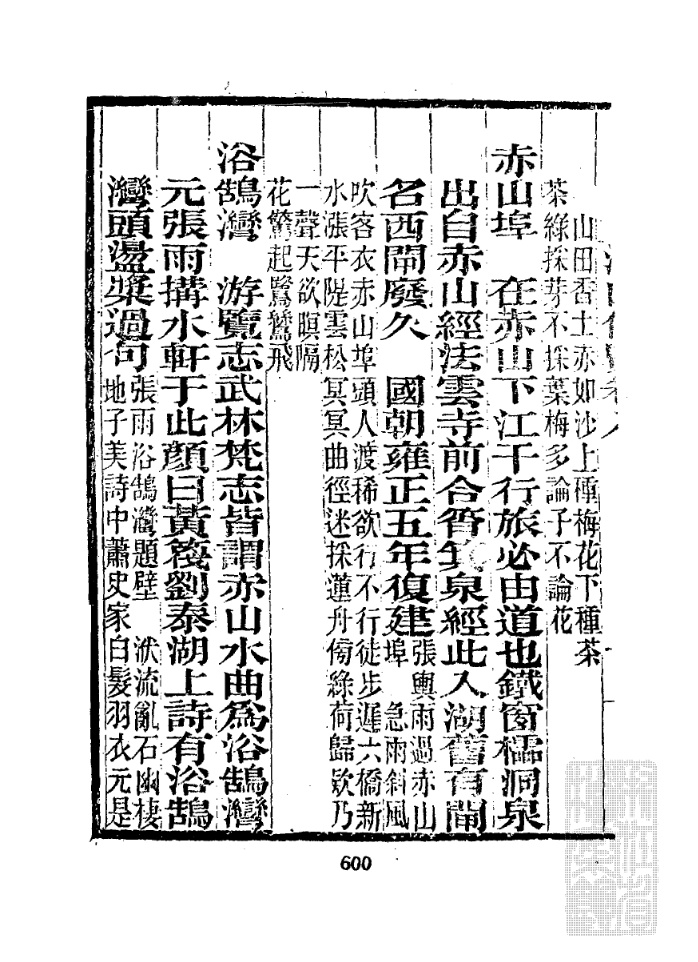 山田香土赤如沙上種梅花下種茶
茶綠採芽不採葉梅多論子不論花
赤山埠　在赤山下江干行旅必由道也鐵窗櫺洞泉
出自赤山經法雲寺前合筲箕泉經此入湖舊有閘
名西閘廢久　國朝雍正五年復建
張輿雨過赤山
埠　急雨斜風
吹客衣赤山埠頭人渡稀欲行不行徒步遲六橋新
水漲平隄雲松冥冥曲徑迷採蓮舟傍綠荷歸欸乃
一聲天欲暝隔
花驚起鷺鷥飛
浴鵠灣　游覽志武林梵志皆謂赤山水曲為浴鵠灣
元張雨搆水軒于此顏曰黃篾劉泰湖上詩有浴鵠
灣頭盪槳過句
張雨浴鵠灣題壁　洑流亂石幽棲
地子美詩中蕭史家白髮羽衣元是
600